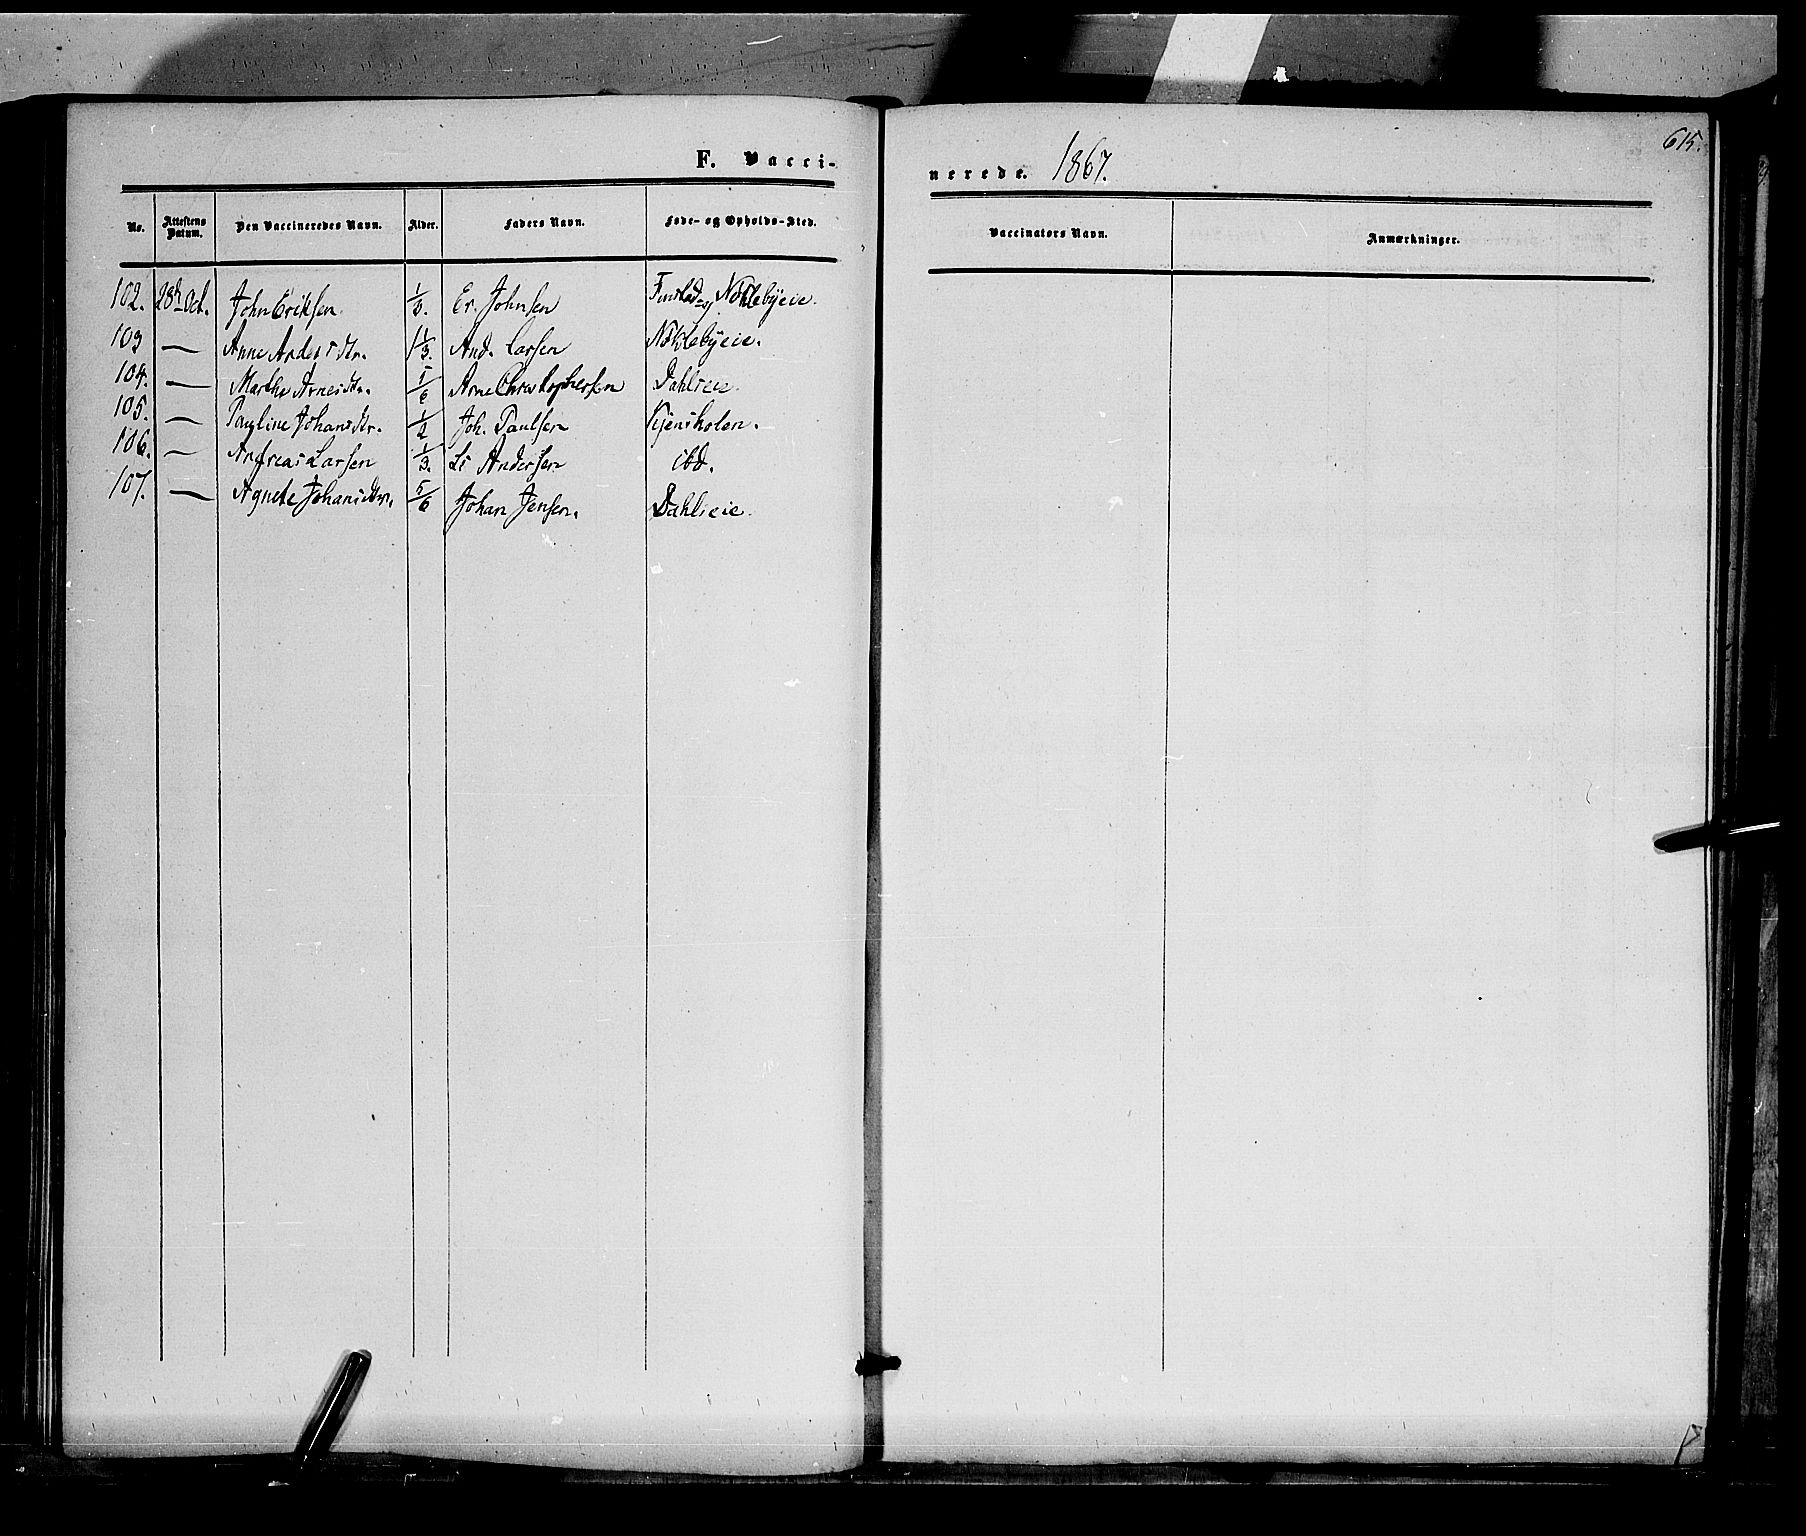 F. Vacci-
nerede. 1867.
615.
No. Attestens Datum. Den Vaccineredes Navn. Alder. Faders Navn. Føde- og Opholds-Sted.
Vaccinators Navn. Anmærkninger.
102. 28 Oct. John Eriksen 1/3. Er. Johnsen Nöklebyeie.
103 — Anne Andersdtr. 1 1/3. And. Larsen Nöklebyeie.
104. — Marthe Arnesdtr. Arne Christophersen Dahlseie
105. — Pauline Johansdtr. 1/2 Joh. Paulsen
106. — Andreas Larsen 1/3. Ls Andersen ibd.
107. — Agnete Johansdtr. 5/6 Johan Jensen. Dahlseie.